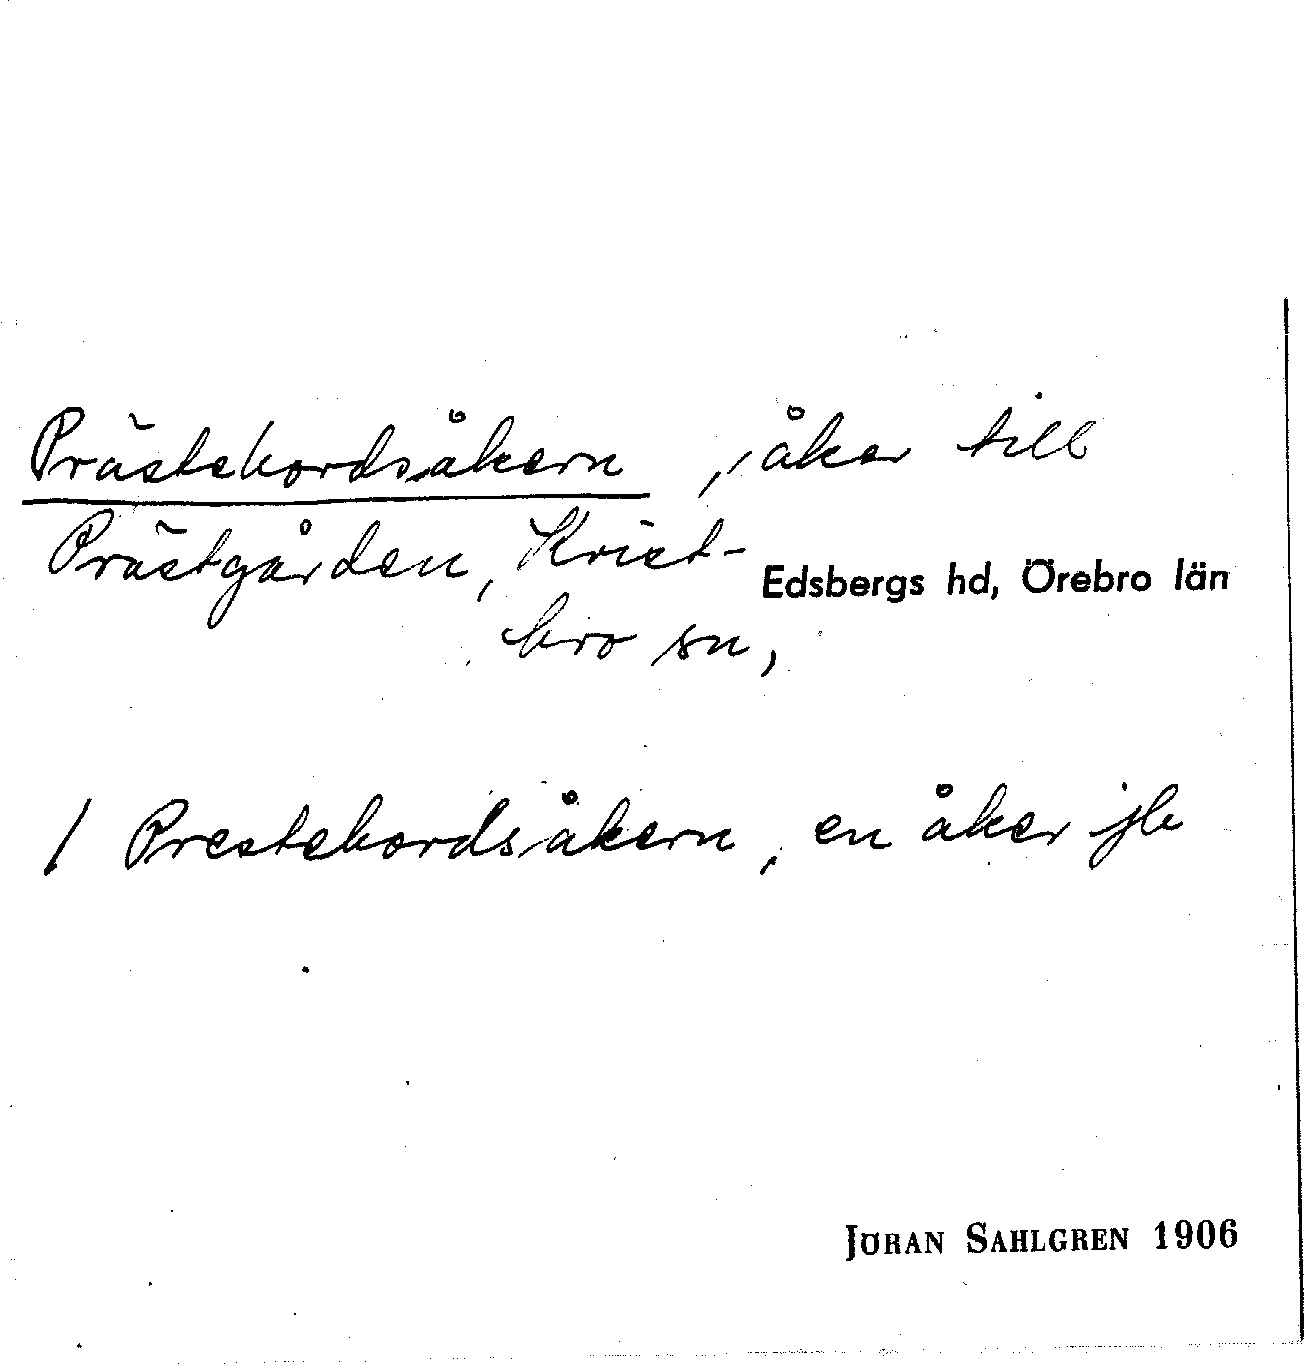 Prästebordsåkern, åker till
Prästgården, Krist-
Edsbergs hd, Örebro län
bro sn,
/ Prestebordsåkern, en åker jb
JÖRAN SAHLGREN 1906